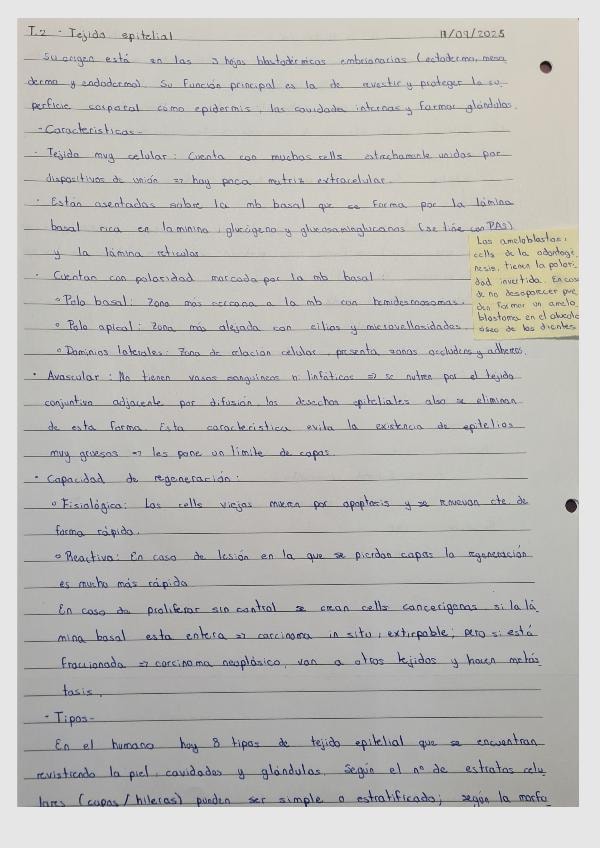 T.2 - Tejido epitelial 11/09/2025
Su origen está en las 3 hojas blastodérmicas embrionarias (ectodermo, meso
dermo y endodermo). Su función principal es la de revestir y proteger la su
perficie corporal como epidermis, las cavidades internas y formar glándulas.
- Características -
· Tejido muy celular: Cuenta con muchas cells estrechamente unidas por
dispositivos de unión => hay poca matriz extracelular.
· Están asentadas sobre la mb basal que se forma por la lámina
basal rica en laminina, glucógeno y glucosaminglucanos (se tiñe con PAS)
y la lámina reticular.
· Cuentan con polaridad marcada por la mb basal:
o Polo basal: Zona más cercana a la mb con hemidesmosomas.
o Polo apical: Zona más alejada con cilios y microvellosidades.
o Dominios laterales: Zona de relación celular, presenta zonas occludens y adherens.
Los ameloblastos,
cells de la odontogé
nesis, tienen la polari
dad invertida. En caso
de no desaparecer pue
den formar un amelo
blastoma en el alveolo
óseo de los dientes
· Avascular: No tienen vasos sanguíneos ni linfáticos => se nutren por el tejido
conjuntivo adyacente por difusión, los desechos epiteliales also se eliminan
de esta forma. Esta característica evita la existencia de epitelios
muy gruesos => les pone un límite de capas.
· Capacidad de regeneración:
o Fisiológica: Las cells viejas mueren por apoptosis y se renuevan cte. de
forma rápida.
o Reactiva: En caso de lesión en la que se pierdan capas la regeneración
es mucho más rápida
En caso de proliferar sin control se crean cells cancerígenas si la lá
mina basal esta entera => carcinoma in situ, extirpable; pero si está
fraccionada => carcinoma neoplásico, van a otros tejidos y hacen metás
tasis.
- Tipos -
En el humano hay 8 tipos de tejido epitelial que se encuentran
revistiendo la piel, cavidades y glándulas. Según el nº de estratos celu
lares (capas / hileras) pueden ser simple o estratificado; según la morfo